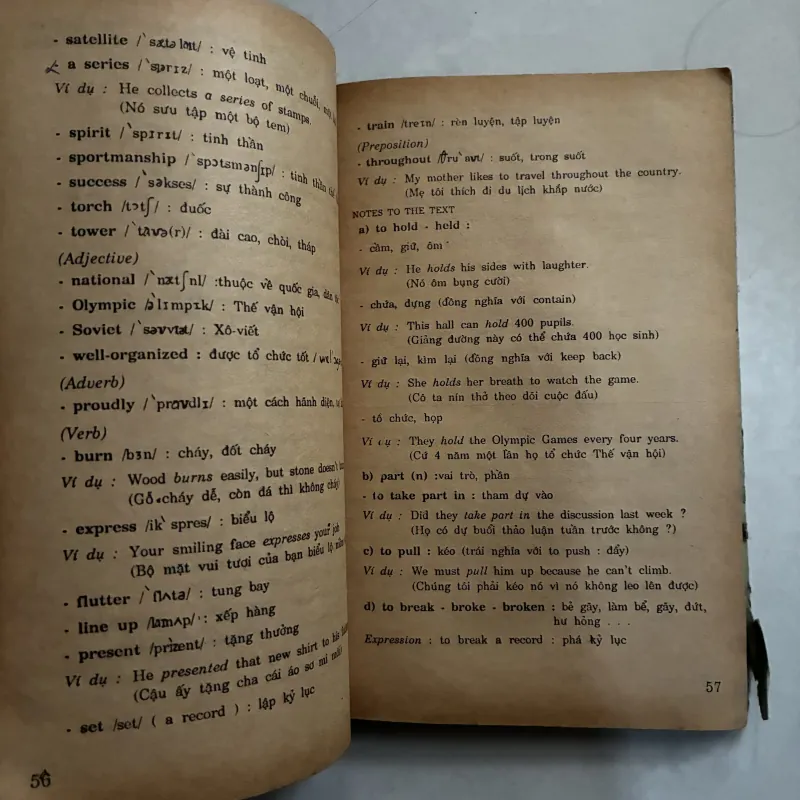 - satellite /`sætəlaɪt/ : vệ tinh
- a series /`spɪrɪz/ : một loạt, một chuỗi, một
Ví dụ : He collects a series of stamps.
(Nó sưu tập một bộ tem)
- spirit /`spɪrɪt/ : tinh thần
- sportmanship /`spɔtsmənʃɪp/ : tinh thần
- success /`səkses/ : sự thành công
- torch /tɔtʃ/ : đuốc
- tower /`tʌvə(r)/ : đài cao, chòi, tháp
(Adjective)
- national /`nætʃnl/ :thuộc về quốc gia, dân
- Olympic /ə`lɪmpɪk/ : Thế vận hội
- Soviet /`səvvtət/ : Xô-viết
- well-organized : được tổ chức tốt
(Adverb)
- proudly /`praʊdlɪ/ : một cách hãnh diện,
(Verb)
- burn /bɜn/ : cháy, đốt cháy
Ví dụ : Wood burns easily, but stone doesn't
(Gỗ cháy dễ, còn đá thì không cháy)
- express /ik`spres/ : biểu lộ
Ví dụ : Your smiling face expresses your
(Bộ mặt vui tươi của bạn biểu lộ
- flutter /`flʌtə/ : tung bay
- line up /laɪnʌp/ : xếp hàng
- present /prɪzent/ : tặng thưởng
Ví dụ : He presented that new shirt to his
(Cậu ấy tặng cha cái áo sơ mi
- set /set/ ( a record ) : lập kỷ lục
56
- train /treɪn/ : rèn luyện, tập luyện
(Preposition)
- throughout /θru`aʊt/ : suốt, trong suốt
Ví dụ : My mother likes to travel throughout the country.
(Mẹ tôi thích đi du lịch khắp nước)
NOTES TO THE TEXT
a) to hold - held :
- cầm, giữ, ôm
Ví dụ : He holds his sides with laughter.
(Nó ôm bụng cười)
- chứa, đựng (đồng nghĩa với contain)
Ví dụ : This hall can hold 400 pupils.
(Giảng đường này có thể chứa 400 học sinh)
- giữ lại, kìm lại (đồng nghĩa với keep back)
Ví dụ : She holds her breath to watch the game.
(Cô ta nín thở theo dõi cuộc đấu)
- tổ chức, họp
Ví dụ : They hold the Olympic Games every four years.
(Cứ 4 năm một lần họ tổ chức Thế vận hội)
b) part (n) :vai trò, phần
- to take part in : tham dự vào
Ví dụ : Did they take part in the discussion last week ?
(Họ có dự buổi thảo luận tuần trước không ?)
c) to pull : kéo (trái nghĩa với to push : đẩy)
Ví dụ : We must pull him up because he can't climb.
(Chúng tôi phải kéo nó vì nó không leo lên được)
d) to break - broke - broken : bẻ gãy, làm bể, gãy, đứt,
hư hỏng . . .
Expression : to break a record : phá kỷ lục
57